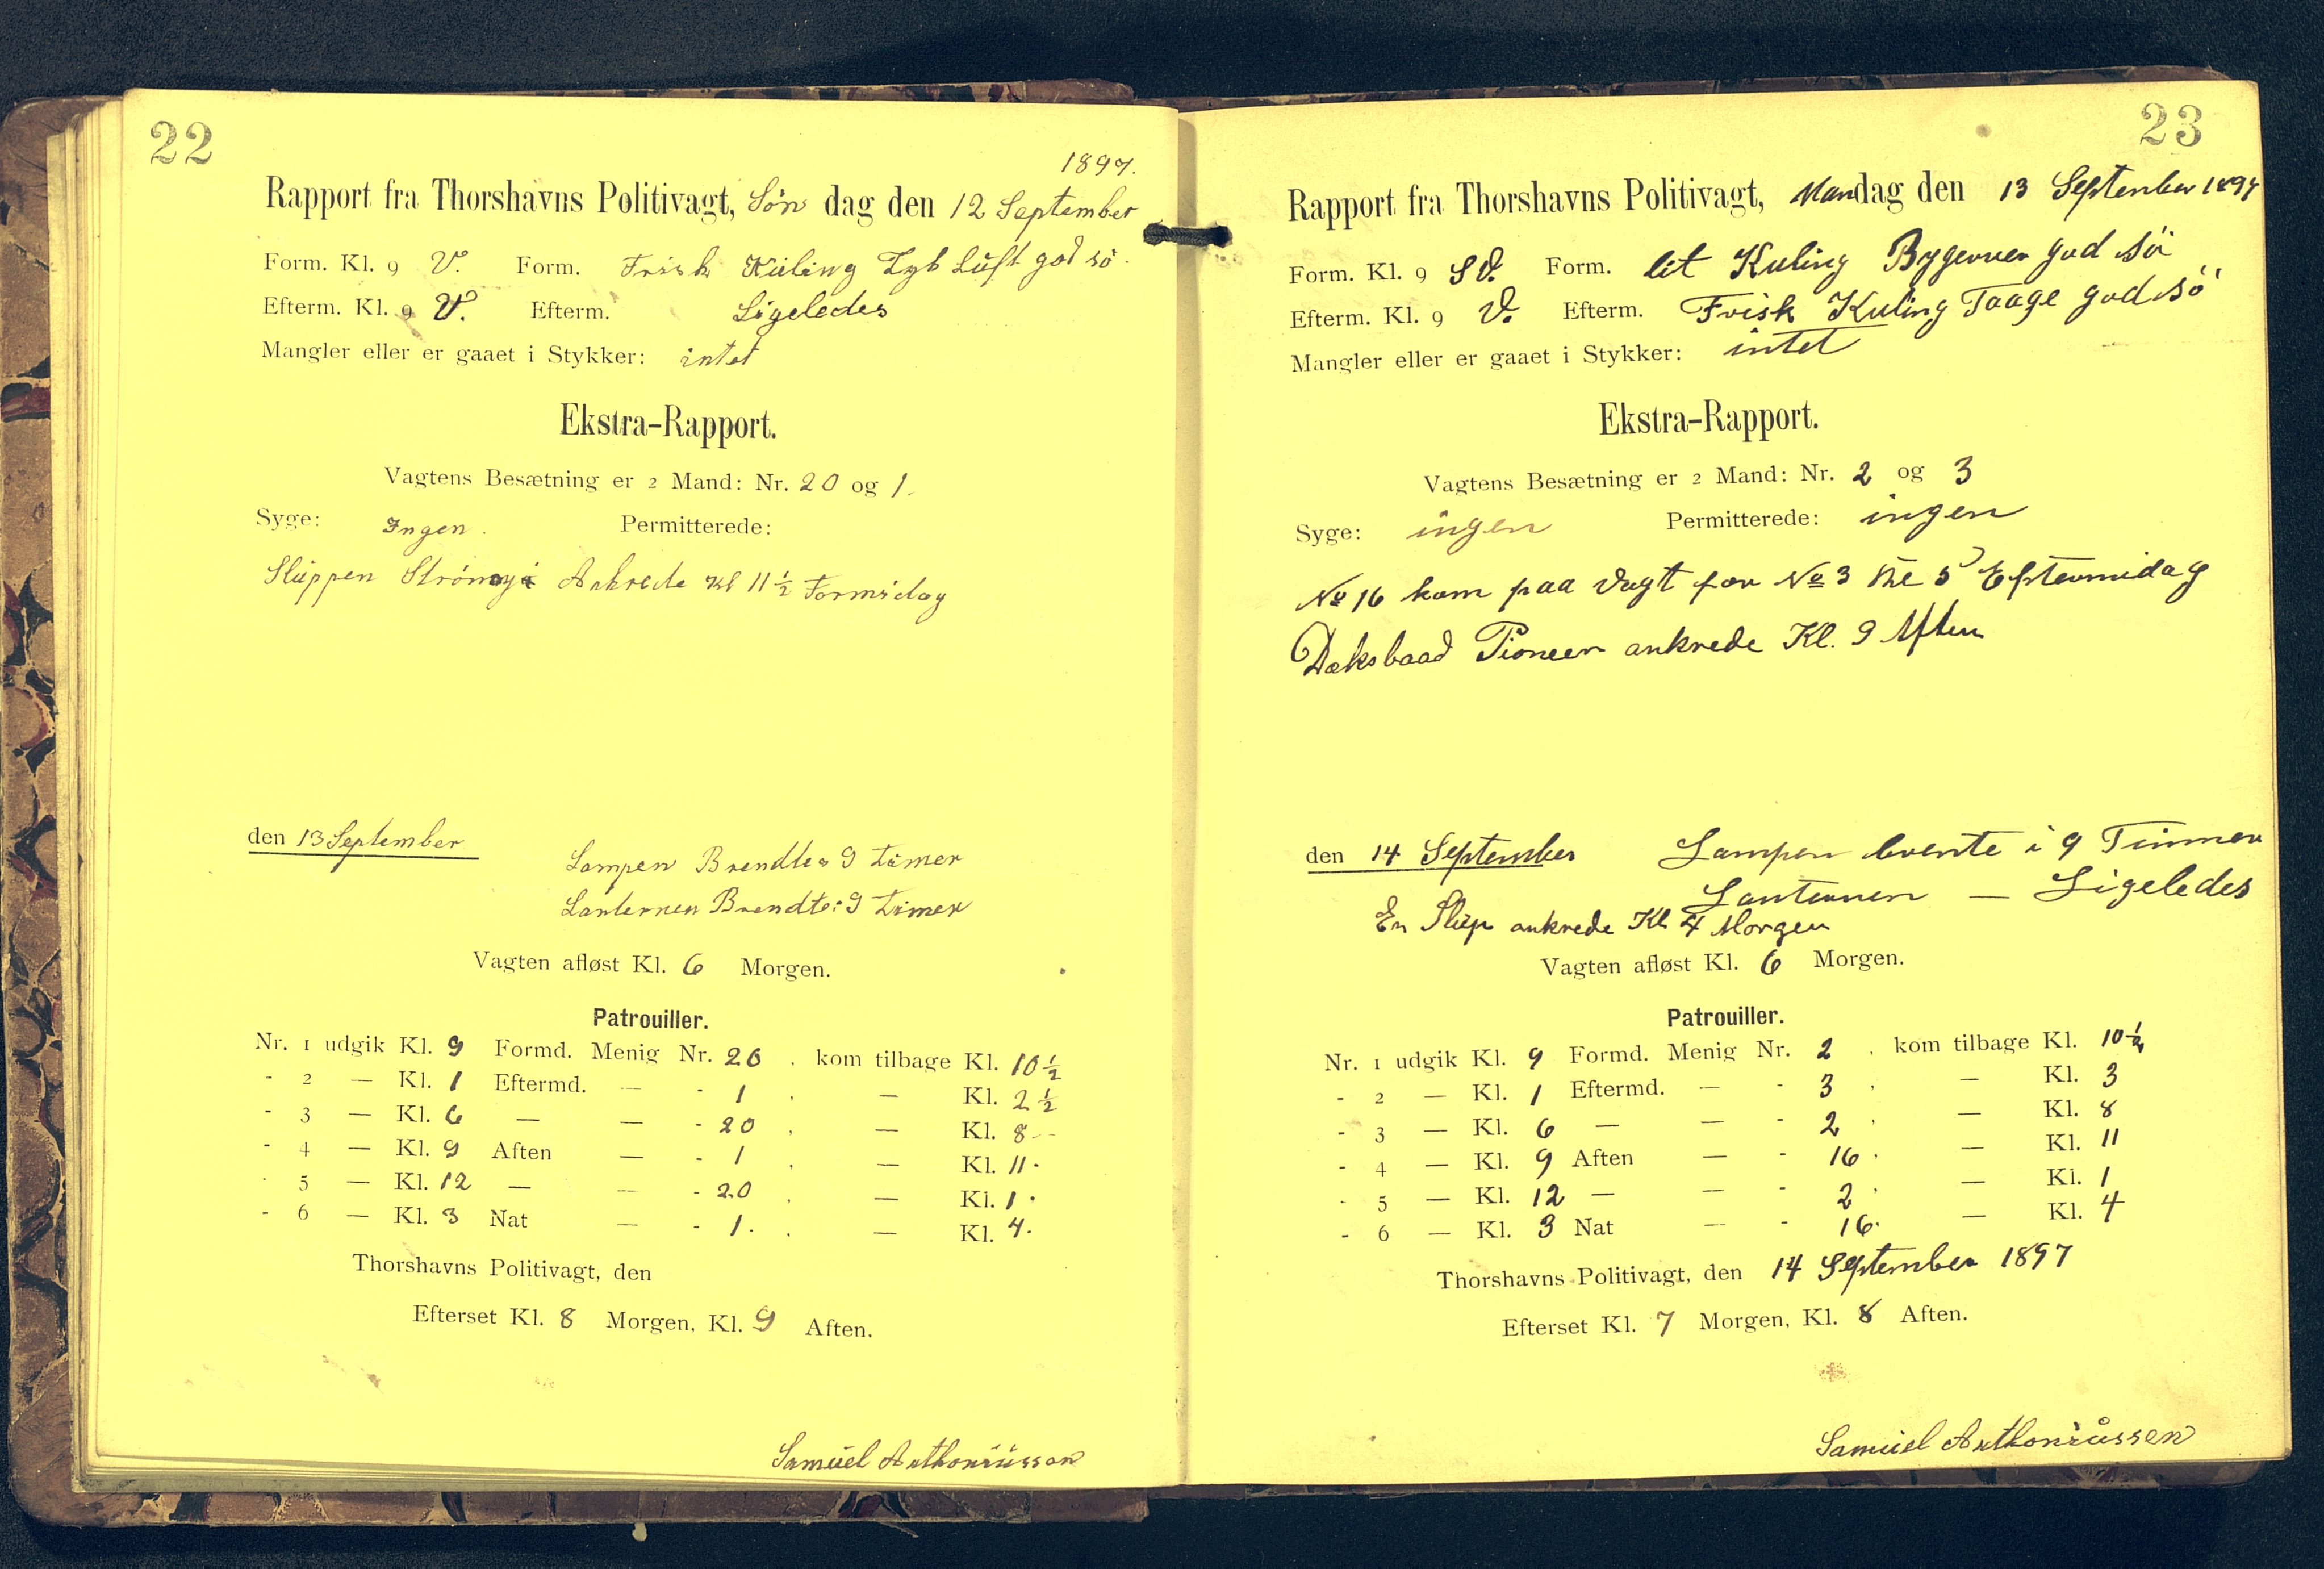 22
1897.
Rapport fra Thorshavns Politivagt, Søn dag den 12 September
Form. Kl. 9 V. Form. Frisk Kuling Tyk Luft god sö.
Efterm. Kl. 9 V. Efterm. Ligeledes
Mangler eller er gaaet i Stykker: intet
Ekstra-Rapport.
Vagtens Besætning er 2 Mand: Nr. 20 og 1.
Syge: Ingen. Permitterede:
Sluppen Strömö Ankrede Kl 11½ Formidag
den 13 September
Lampen Brendte 9 Timer
Lanternen Brendte 9 Timer
Vagten afløst Kl. 6 Morgen.
Patrouiller.
Nr. 1 udgik Kl. 9 Formd. Menig Nr. 20 . kom tilbage Kl. 10½
- 2 — Kl. 1 Eftermd. — - 1 . — Kl. 2½
- 3 — Kl. 6 — — - 20 . — Kl. 8 --
- 4 — Kl. 9 Aften — - 1 . — Kl. 11.
- 5 — Kl. 12 — — - 20 . — Kl. 1.
- 6 — Kl. 3 Nat — - 1. . — Kl. 4.
Thorshavns Politivagt, den
Efterset Kl. 8 Morgen, Kl. 9 Aften.
Samüel Anthoniüssen
23
Rapport fra Thorshavns Politivagt, Mandag den 13 September 1897
Form. Kl. 9 SV. Form. let Kuling Bygevver god sö
Efterm. Kl. 9 V. Efterm. Frisk Kuling Taage god sö
Mangler eller er gaaet i Stykker: intet
Ekstra-Rapport.
Vagtens Besætning er 2 Mand: Nr. 2 og 3
Syge: ingen Permitterede: ingen
No 16 kom paa Vagt for No 3 Kl 5 Eftermidag
Dæksbaad Pioneer ankrede Kl. 9 Aften
den 14 September Lampen brente i 9 Timmer
Lanternen — Ligeledes
En Slup ankrede Kl 4 Morgen
Vagten afløst Kl. 6 Morgen.
Patrouiller.
Nr. 1 udgik Kl. 9 Formd. Menig Nr. 2 . kom tilbage Kl. 10½
- 2 — Kl. 1 Eftermd. — - 3 . — Kl. 3
- 3 — Kl. 6 — — - 2 . — Kl. 8
- 4 — Kl. 9 Aften — - 16 . — Kl. 11
- 5 — Kl. 12 — — - 2 . — Kl. 1
- 6 — Kl. 3 Nat — - 16. — Kl. 4
Thorshavns Politivagt, den 14 September 1897
Efterset Kl. 7 Morgen, Kl. 8 Aften.
Samüel Anthoniüssen